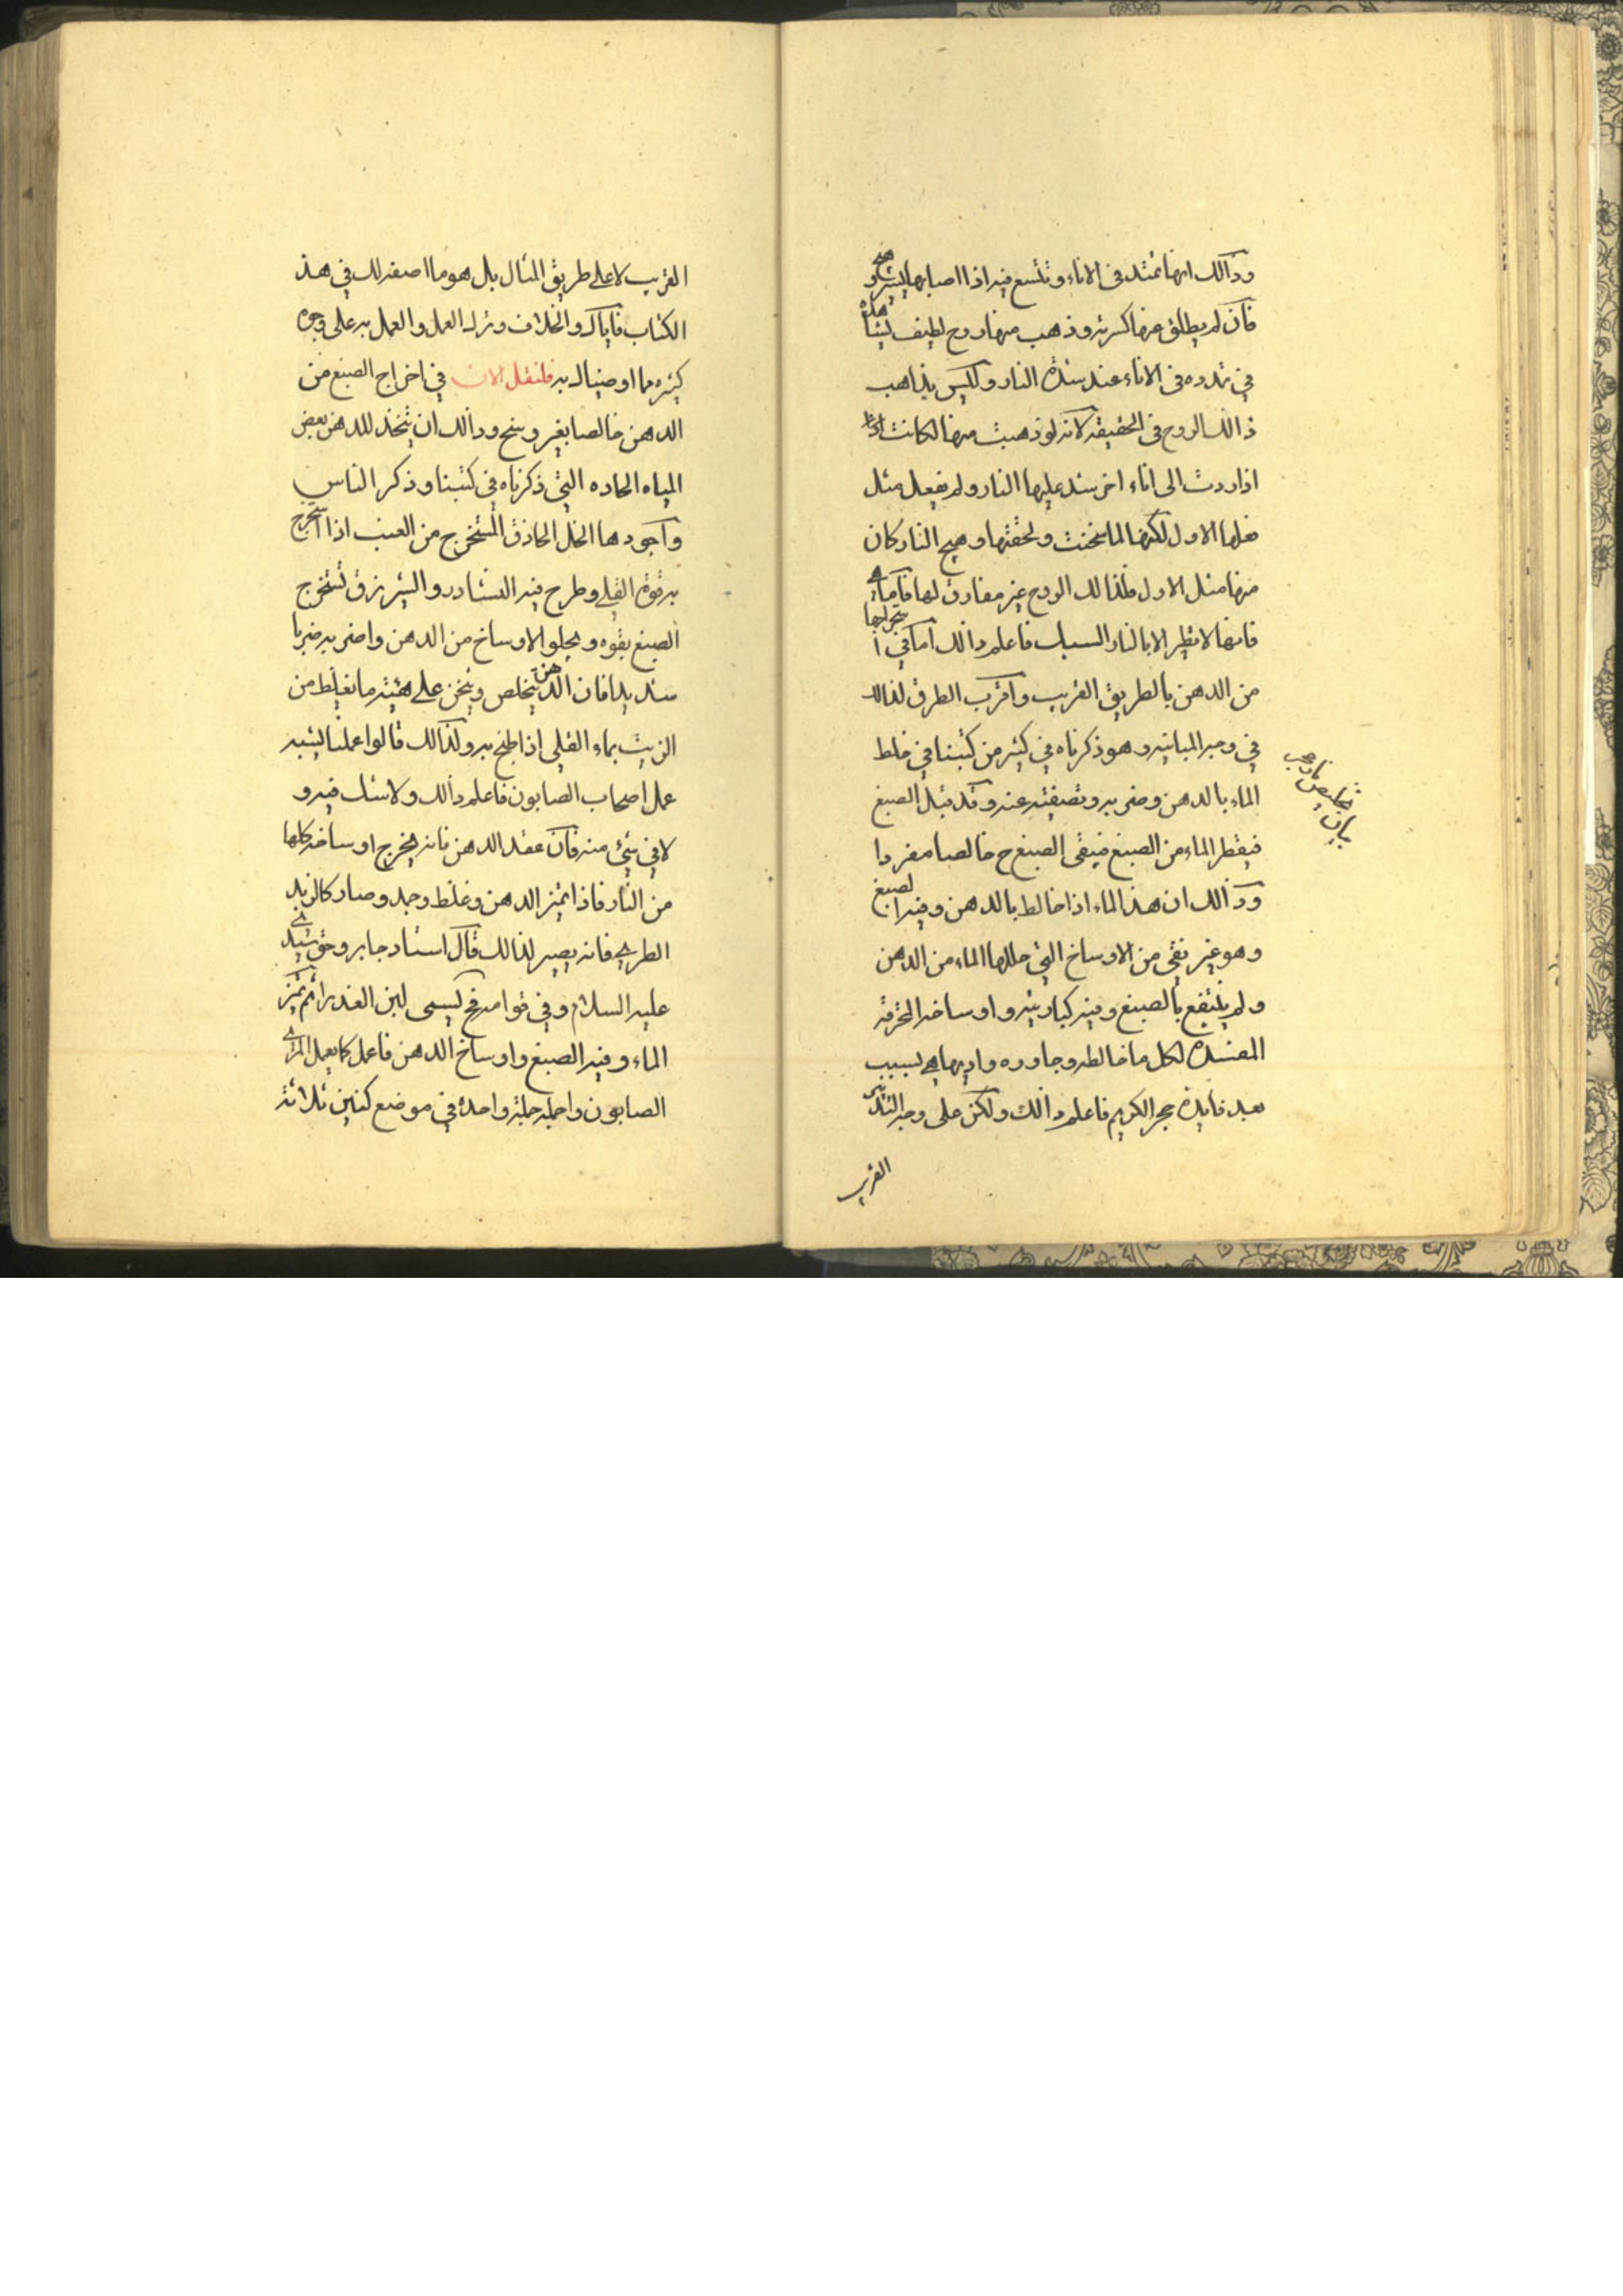 وذالك انها تمتد فى الاناء وتتسع فيه اذا اصابها
فان لم يطلق عنها كسرته وذهب منها روح لطيف
فى تمدده فى الاناء عند شدة النار وليس بذاهب
ذالك الروح فى الحقيقه لانه لو ذهبت منها لكانت
اذا ردت الى اناء اخر شد عليها النار ولم تفعل مثل
فعلها الاول لكنها لما سخنت ولحقتها وهيج النار كان
منها مثل الاول فلذالك الروح غير مفارق لها فاما
فانها لا تظهر الا بالنار فاعلم ذالك اما فى استخراجها
من الدهن بالطريق القريب واقرب الطرق لذالك
فى وجه المباينه وهو ذكرناه فى كثير من كتبنا فى خلط
الماء بالدهن وضربه وتصفيته عنه وقد قبل الصبغ
فيقطر الماء من الصبغ فيبقى الصبغ ح خالصا مفردا
وذالك ان هذا الماء اذا خالط بالدهن وفيه الصبغ
وهو غير نقى من الاوساخ التى حللها الماء من الدهن
ولم ينتفع بالصبغ وفيه كباريته واوساخه المحرقه
المفسدة لكل ما خالطه وجاوره هى لسبب
بعد فايدة حجر الكريم فاعلم ذالك ولكن على وجه التدبير
القريب
القريب لا على طريق المثال بل هو ما اصفه لك فى هذ
الكتاب فاياك والخلاف وترك العمل والعمل به على وجوه
كثيره مما اوصيناك به فلنقل الان فى اخراج الصبغ من
الدهن خالصا بغير وسخ وذالك ان يتخذ للدهن بعض
المياه الحاده التى ذكرناه فى كتبنا وذكر الناس
واجودها الخل الحاذق المستخرج من العنب اذا استخرج
به قوة القلى وطرح فيه النشادر والشيرزق تستخرج
الصبغ بقوه ويجلو الاوساخ من الدهن واضربه ضربا
شديدا فان الدهن يتخلص ويثخن على هيئة ما يغلظ من
الزيت بماء القلى اذا طبخ به ولذالك قالوا عملنا يشبه
عمل اصحاب الصابون فاعلم ذالك ولا شك فيه و
لا فى شئ منه فان عقد الدهن فانه يخرج اوساخه كلها
من النار فاذا تميز الدهن وغلظ وجمد وصار كالزبد
الطرى فانه يصير لذالك قال استاد جابر وحق سيدى
عليه السلام وفى قوامه ح ليسمى لبن العذرا ثم تميز
الماء وفيه الصبغ واوساخ الدهن فاعمل كما يعمل
الصابون واحمله حملة واحدة فى موضع كنين ثلاثة